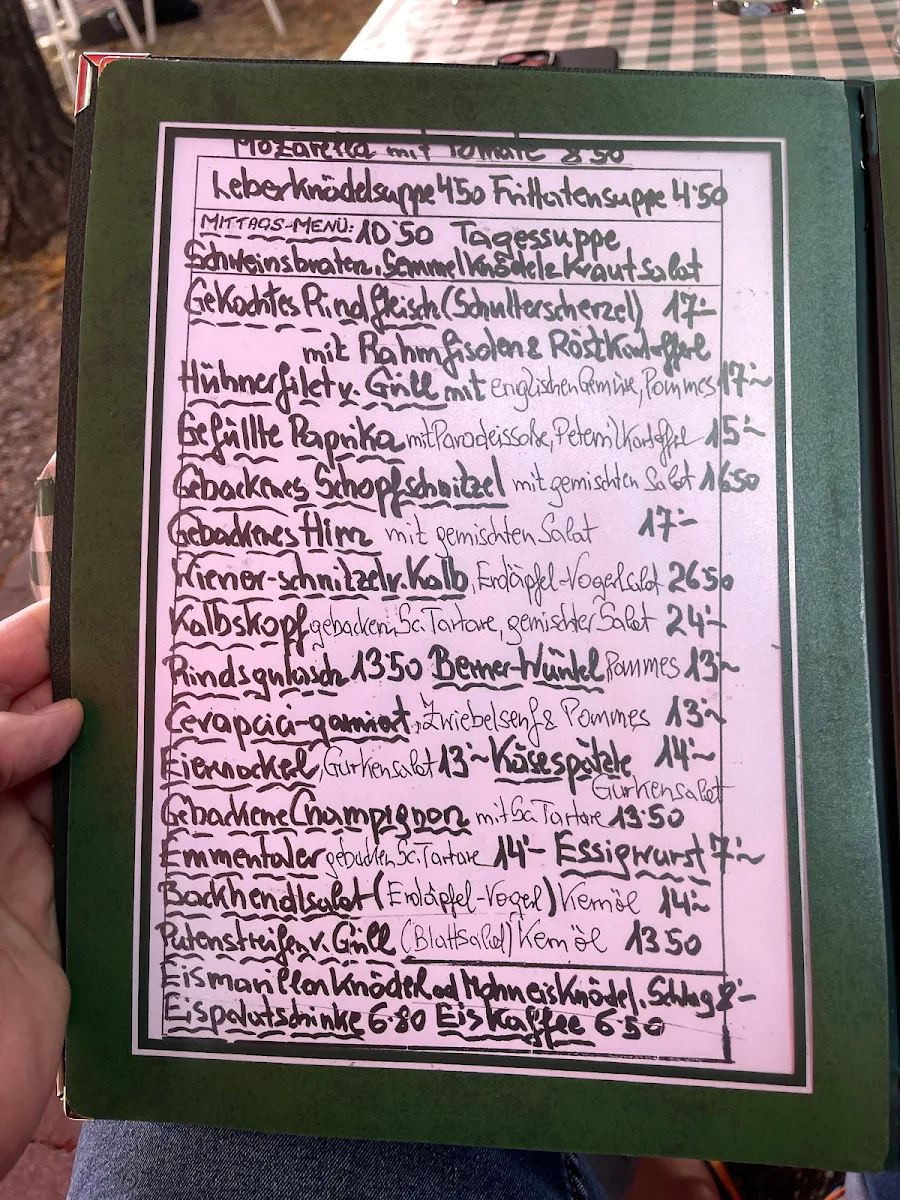 Mozarella mit Tomate 8'50
Leberknödelsuppe 4'50 Frittatensuppe 4'50
MITTAGS-MENÜ: 10'50 Tagessuppe
Schweinsbraten, Semmelknödel & Krautsalat
Gekochtes Rindfleisch (Schulterscherzel) 17'-
mit Rahmfisolen & Röstkartofferl
Hühnerfilet v. Grill mit englischen Gemüse, Pommes 17'~
Gefüllte Paprika mit Paradeissoße, Petersilkartoffel 15'~
Gebackenes Schopfschnitzel mit gemischten Salat 16'50
Gebackenes Hirn mit gemischten Salat 17'-
Wiener-schnitzel v. Kalb, Erdäpfel-Vogerlsalat 26'50
Kalbskopf gebacken, Sc. Tartare, gemischter Salat 24'-
Rindsgulasch 13'50 Berner-Würstel Pommes 13'~
Cevapcici-garniert, Zwiebelsenf & Pommes 13'~
Eiernockerl, Gurkensalat 13'~ Käsespätzle 14'~
Gurkensalat
Gebackene Champignon mit Sc. Tartare 13'50
Emmentaler gebacken, Sc. Tartare 14'- Essigwurst 7'~
Backhendlsalat (Erdäpfel-Vogerl) Kernöl 14'~
Putenstreifen v. Grill (Blattsalat) Kernöl 13'50
Eismarillenknödel od Mohneisknödel, Schlag 8'-
Eispalatschinke 6'80 Eiskaffee 6'50